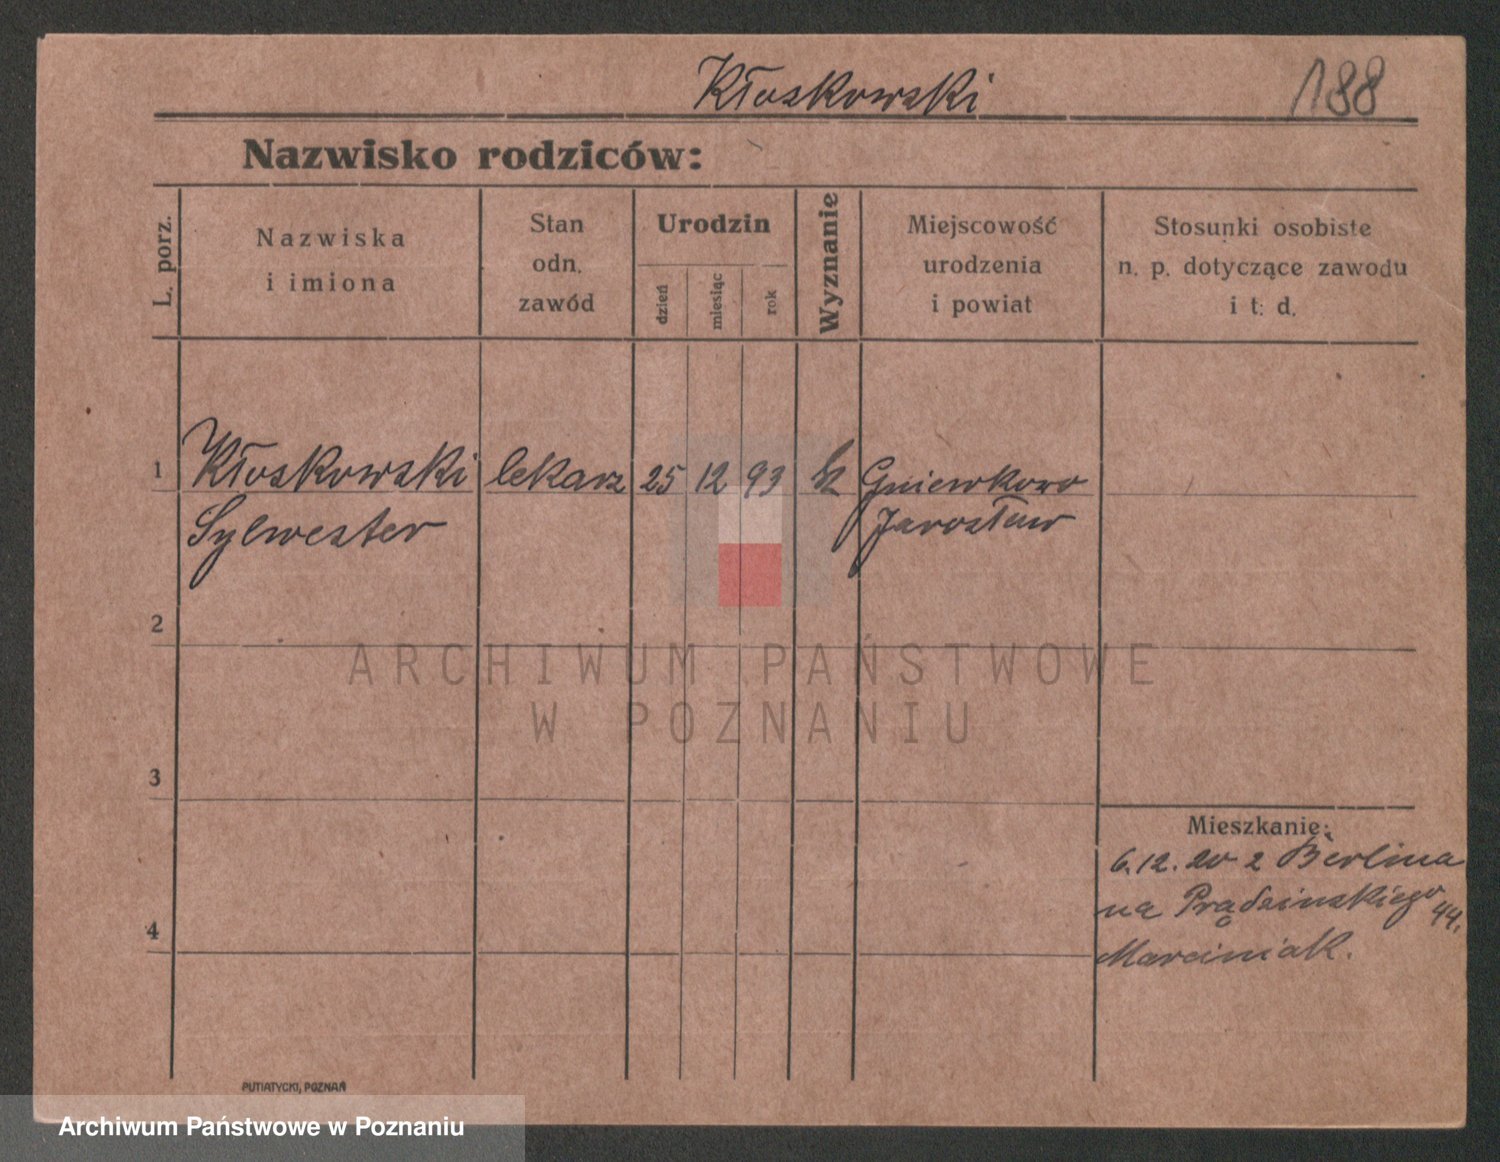 Kłoskowski
188
Nazwisko rodziców:
L. porz.
Nazwiska
i imiona
Stan
odn.
zawód
Urodzin
dzień
miesiąc
rok
Wyznanie
Miejscowość
urodzenia
i powiat
Stosunki osobiste
n. p. dotyczące zawodu
i t. d.
1 Kłoskowski lekarz 25 12 93 Gniewkowo
Sylwester Jarosław
2
ARCHIWUM PAŃSTWOWE
W POZNANIU
3
Mieszkanie:
6.12.20 z Berlina
na Prądzinskiego 44.
4
Marciniak.
PUTIATYCKI, POZNAŃ
Archiwum Państwowe w Poznaniu